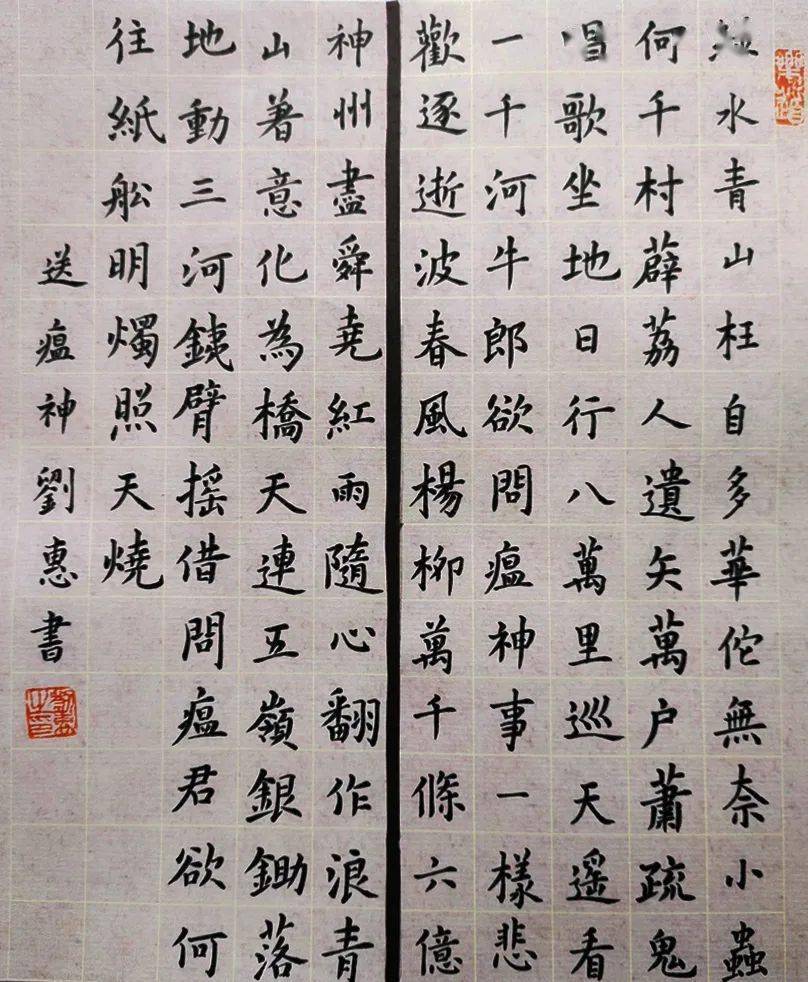 水青山枉自多華佗無奈小蟲
何千村薜荔人遺矢萬户蕭疏鬼
唱歌坐地日行八萬里巡天遥看
一千河牛郎欲問瘟神事一樣悲
歡逐逝波春風楊柳萬千條六億
神州盡舜堯紅雨隨心翻作浪青
山著意化為橋天連五嶺銀鋤落
地動三河銕臂摇借問瘟君欲何
往紙舩明燭照天燒
送瘟神劉惠書